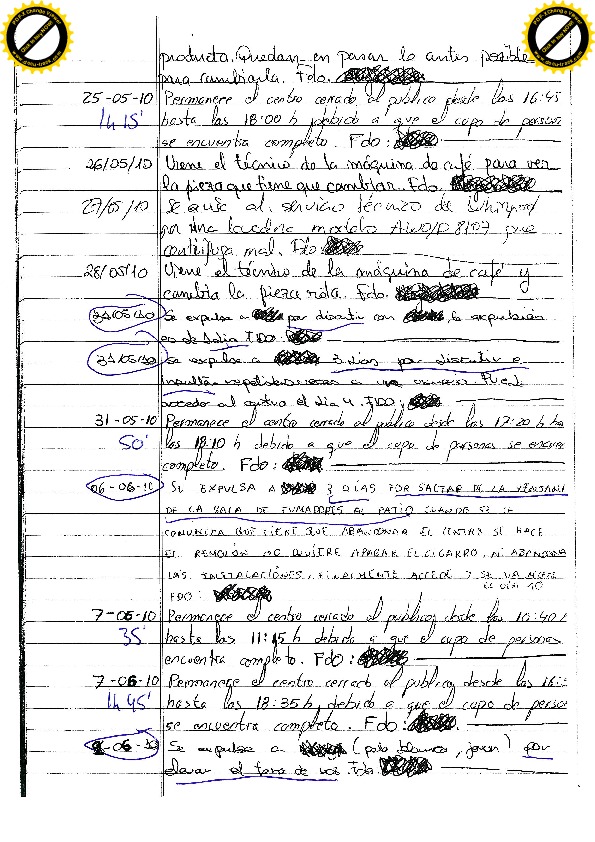 producto. Quedan en pasar lo antes posible
para cambiarla. Fdo.
25-05-10 Permanece el centro cerrado al publico desde las 16:45
1h 15' hasta las 18:00 h debido a que el cupo de person
se encuentra completo. Fdo:
26/05/10 Viene el técnico de la máquina de café para ver
la pieza que tiene que cambiar. Fdo.
27/5/10 Se avisa al servicio técnico de Whirlpool
por una lavadora modelo AWO/D 8107 que
centrifuga mal. Fdo
28/05/10 Viene el técnico de la máquina de café y
cambia la pieza rota. Fdo.
Se expulsa a por discutir con , la expulsión
es de FDO:
31/05/10 Se expulsa a 3 días por discutir e
insultar a Puede
acceder al centro el día 4. FDO:
31-05-10 Permanece el centro cerrado al público desde las 17:20 h ha
50' las 18:10 h debido a que el cupo de personas se encue
completo. Fdo:
06-06-10 SE EXPULSA A 3 DÍAS POR SALTAR DE LA VENTANA
DE LA SALA DE FUMADORES AL PATIO CUANDO SE LE
COMUNICA QUE TIENE QUE ABANDONAR EL CENTRO SE HACE
EL REMOLÓN NO QUIERE APAGAR EL CIGARRO, NI ABANDONA
LAS INSTALACIONES, FINALMENTE ACCEDE Y SE VA. ACCEDE
EL DÍA 10
FDO:
7-06-10 Permanece el centro cerrado al público, desde las 10:40
35' hasta las 11:15 h debido a que el cupo de personas
encuentra completo. Fdo:
7-06-10 Permanece el centro cerrado al publico, desde las 16:5
1h 45' hasta las 18:35 h, debido a que el cupo de perso
se encuentra completo. Fdo:
Se expulsa a (pelo blanco, joven) por
elevar el tono de voz. Fdo